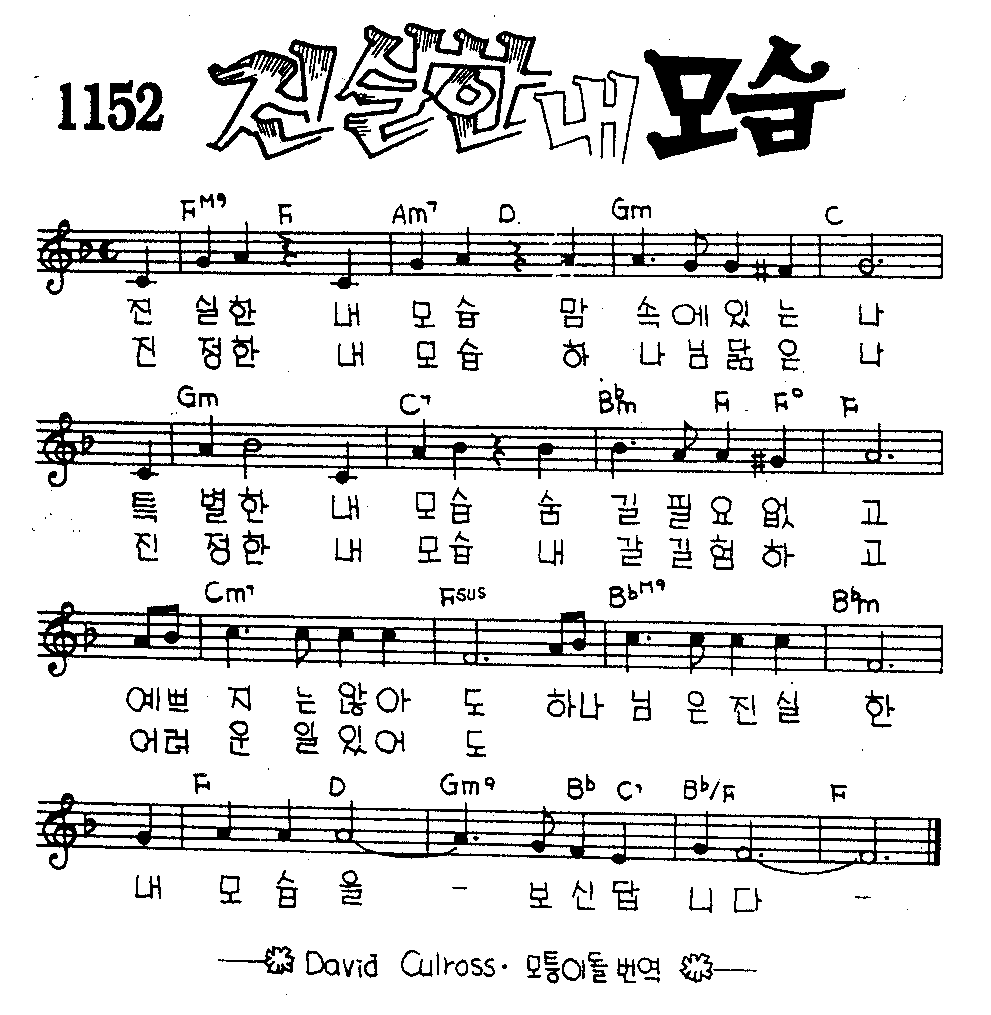 1152 진실한 내 모습
FM9 F Am7 D Gm C
진 실한 내 모 습 맘 속에있 는 나
진 정한 내 모 습 하 나님닮 은 나
Gm C7 Bbm F F° F
특 별한 내 모습 숨 길 필 요 없 고
진 정한 내 모습 내 갈 길 험 하 고
Cm7 Fsus BbM9 Bbm
예쁘 지 는않아 도 하나 님 은 진 실 한
어려 운 일있어 도
F D Gm9 Bb C7 Bb/F F
내 모 습 을 - 보 신 답 니 다 -
David Culross. 모퉁이돌 번역